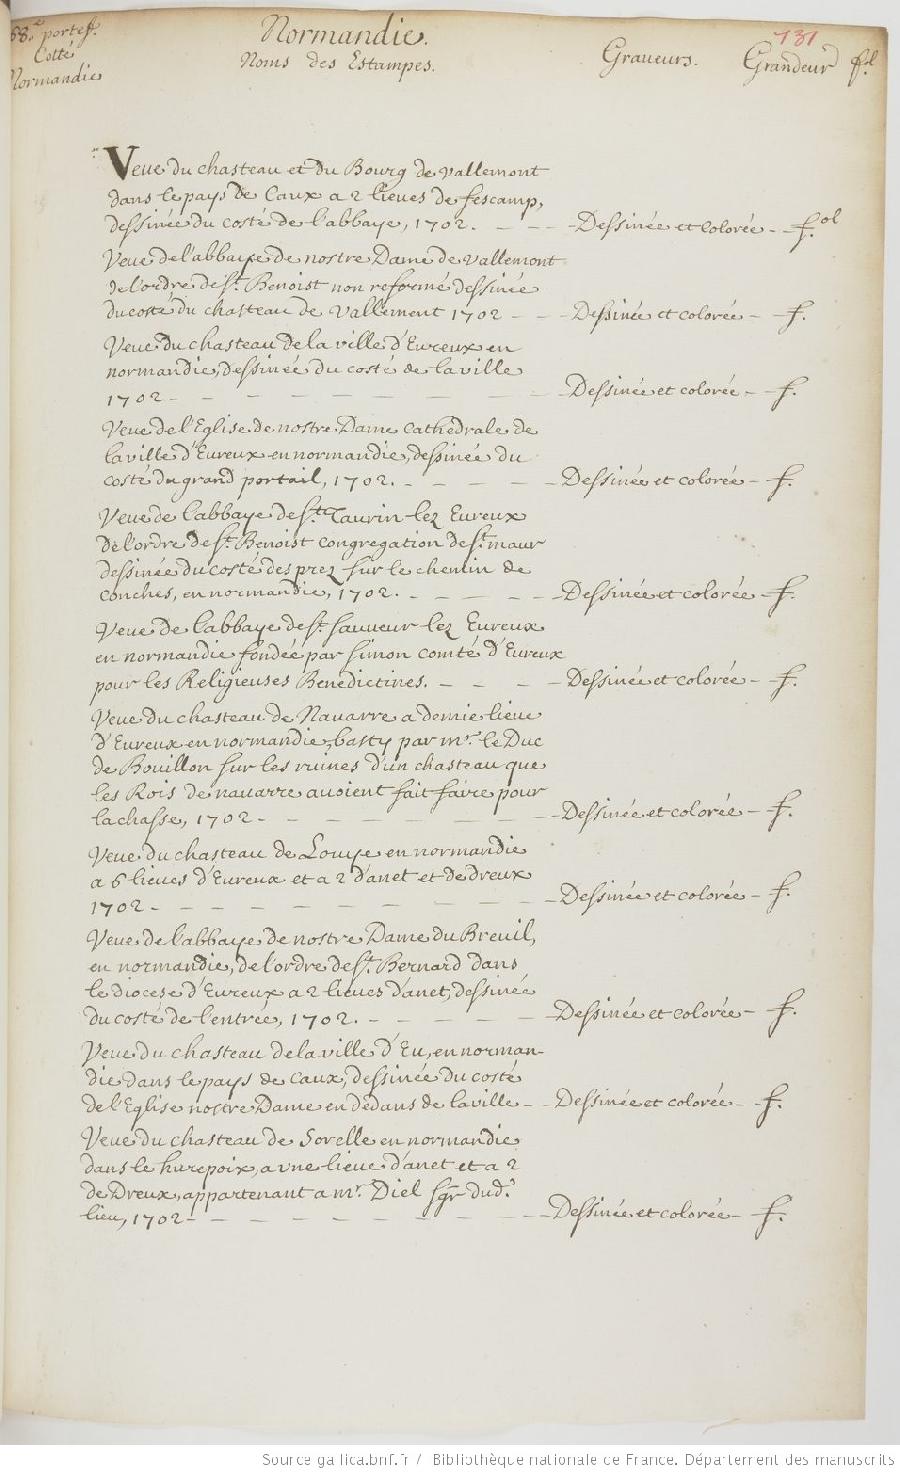 68.e portef.
Cotté
Normandie
Normandie.
Noms des Estampes.
Graueurs.
731
Grandeur
f.l
Veue du chasteau et du Bourg de Vallemont
dans le pays de Caux a 2 lieues de fescamp,
dessinée du costé de l'abbaye, 1702. - - - Dessinée et colorée - f.ol
Veue de l'abbaye de nostre Dame de Vallemont
de l'ordre de St. Benoist non reformé dessinée
du costé du chasteau de Vallement 1702 - - Dessinée et colorée - f.
Veue du chasteau de la ville d'Eureux en
normandie, dessinée du costé de la ville
1702 - - - - - - - - Dessinée et colorée - f.
Veue de l'Eglise de nostre Dame Cathedrale de
la ville d'Eureux en normandie, dessinée du
costé du grand portail, 1702. - - - - Dessinée et colorée - f.
Veue de l'abbaye de St. Taurin lez Eureux
de l'ordre de St. Benoist congregation de St. maur
dessinée du costé des prez sur le chemin de
conches, en normandie, 1702. - - - - Dessinée et colorée - f.
Veue de l'abbaye de St. Sauueur lez Eureux
en normandie fondée par Simon comte d'Eureux
pour les Religieuses Benedictines. - - - - Dessinée et colorée - f.
Veue du chasteau de Nauarre a demie lieue
d'Eureux en normandie, basty par mr. le Duc
de Bouillon sur les ruines d'un chasteau que
les Rois de nauarre auoient fait faire pour
la chasse, 1702 - - - - - - Dessinée et colorée - f.
Veue du chasteau de Louye en normandie
a 6 lieues d'Eureux et a 2 d'anet et de Dreux
1702 - - - - - - - - Dessinée et colorée - f.
Veue de l'abbaye de nostre Dame du Breuil,
en normandie, de l'ordre de St. Bernard dans
le diocese d'Eureux a 2 lieues d'anet, dessinée
du costé de l'entrée, 1702. - - - - Dessinée et colorée - f.
Veue du chasteau de la ville d'Eu, en norman-
die dans le pays de Caux, dessinée du costé
de l'Eglise nostre Dame en dedans de la ville - - Dessinée et colorée - f.
Veue du chasteau de Sorelle en normandie
dans le hurepoix, a vne lieue d'anet et a 2
de Dreux, appartenant a mr. Diel sgr. dud.
lieu, 1702 - - - - - - - Dessinée et colorée - f.
Source gallica.bnf.fr / Bibliothèque nationale de France. Département des manuscrits